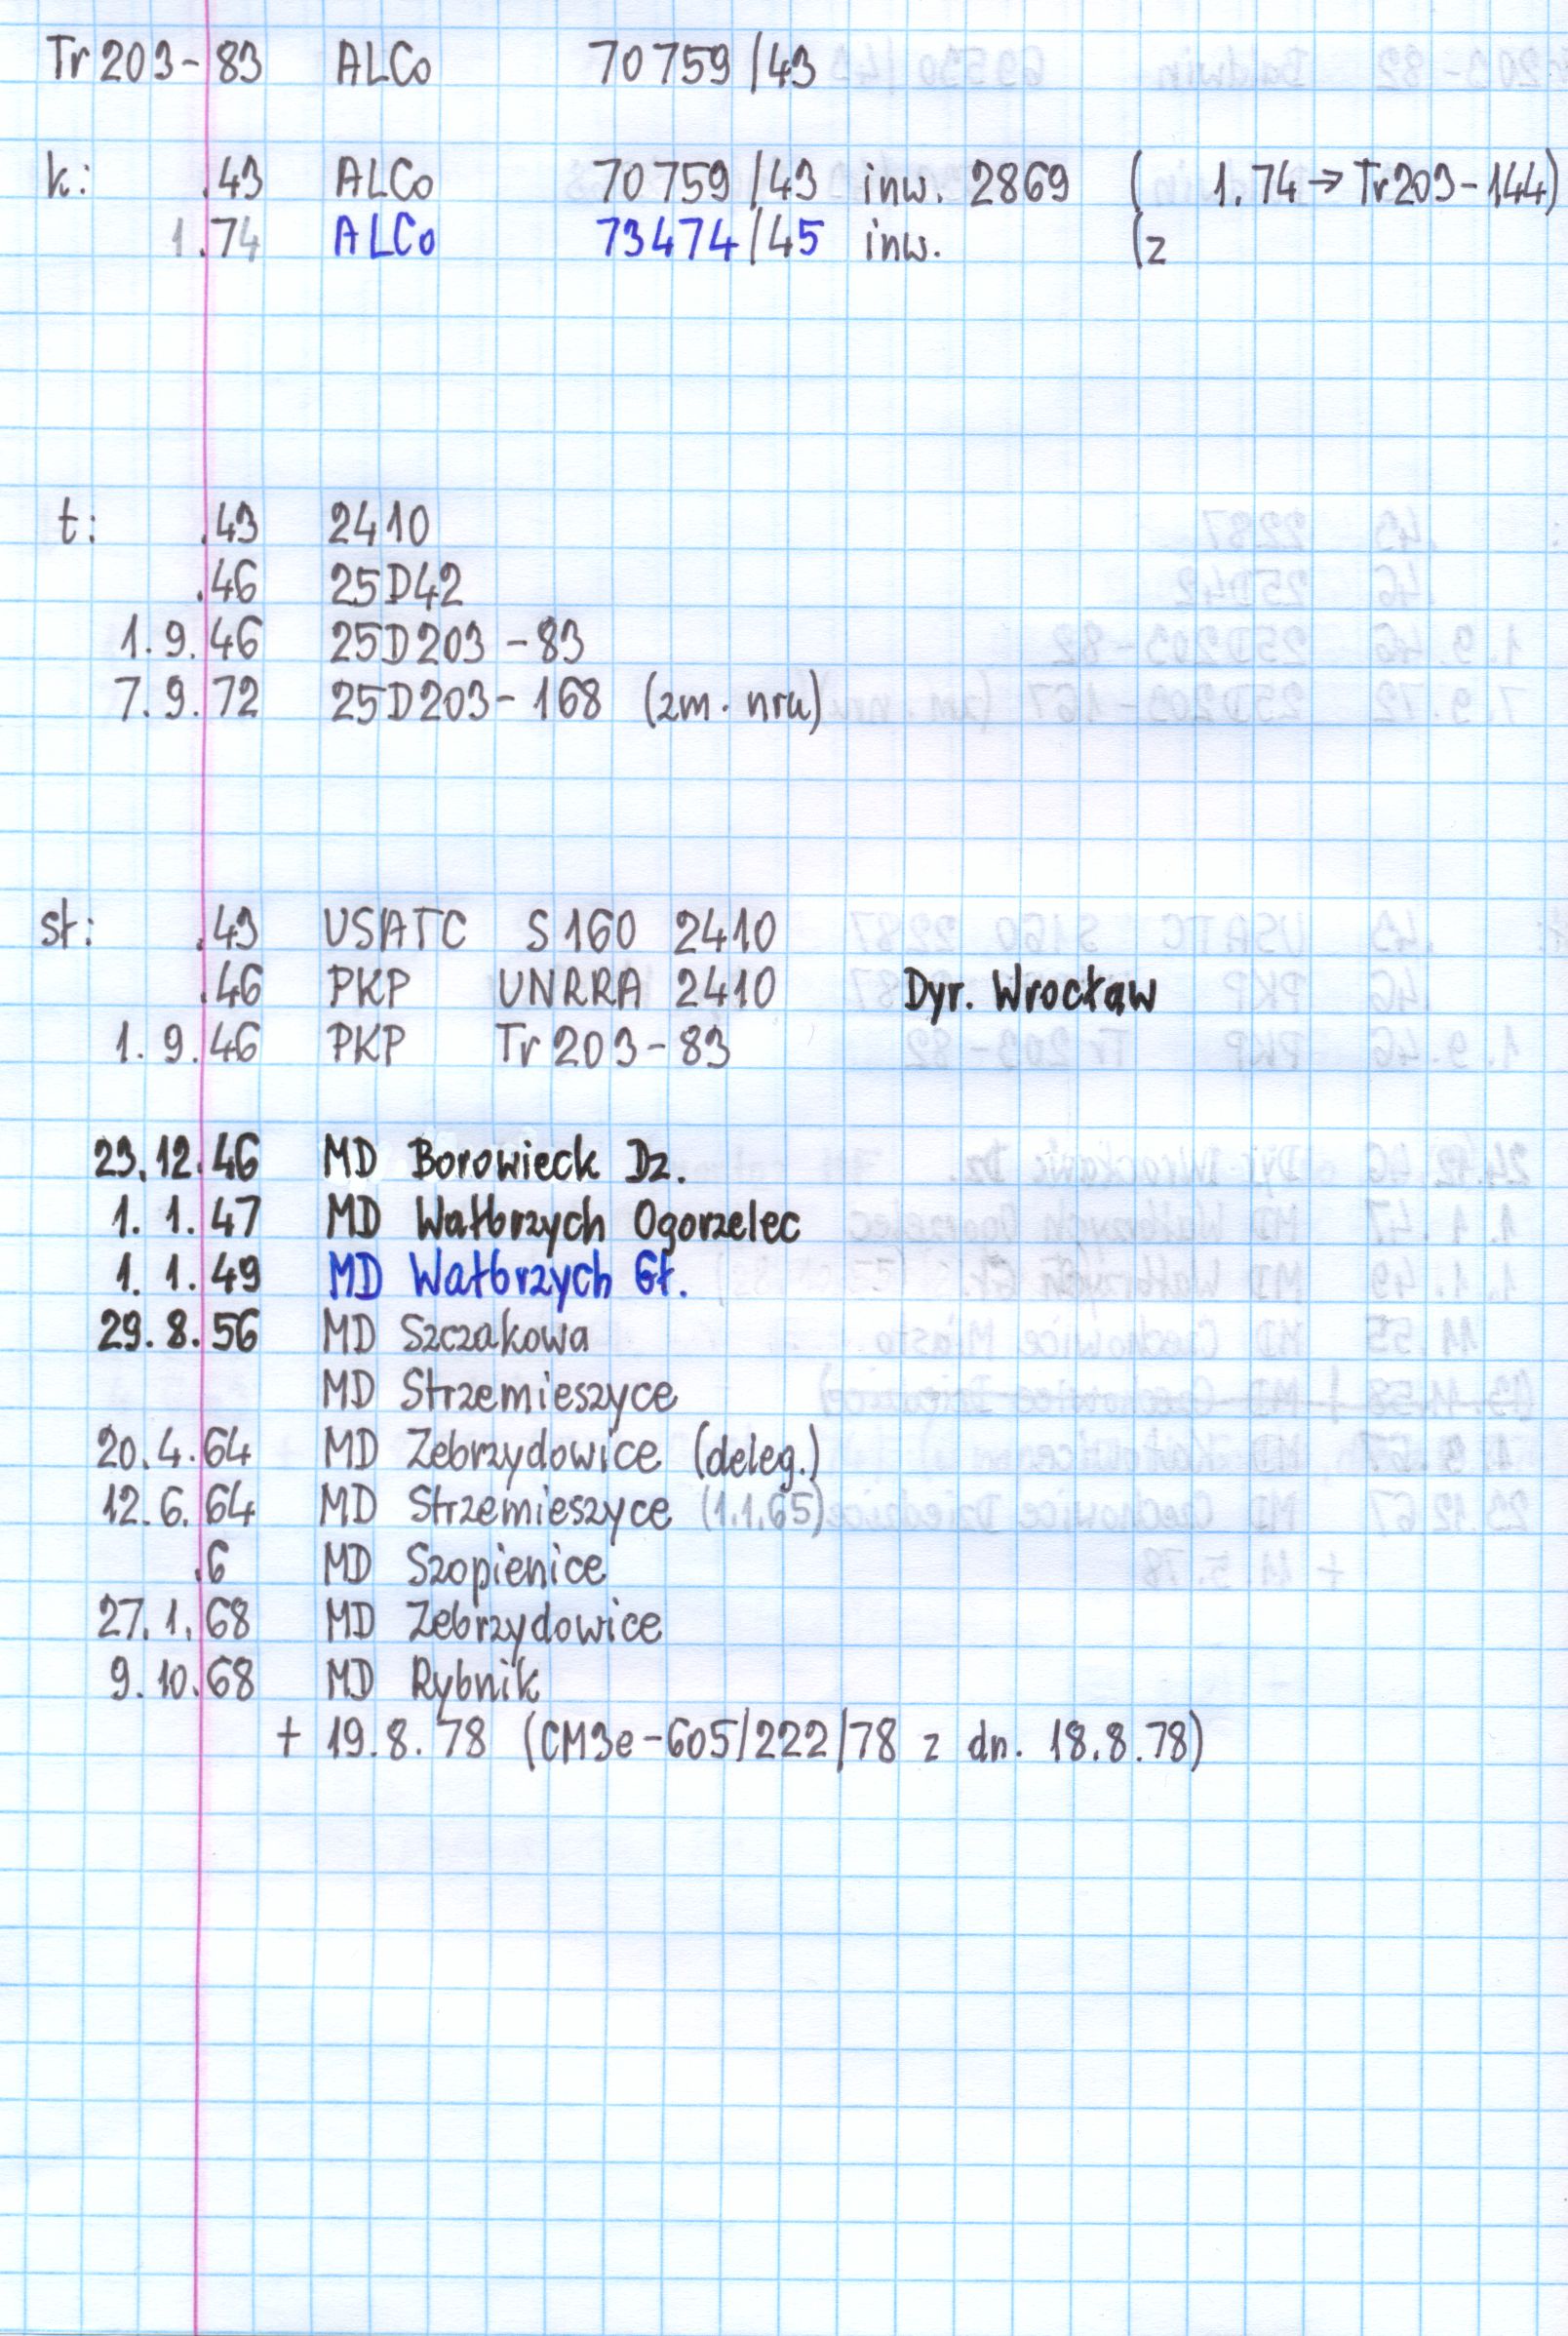 Tr 203-83 ALCo 70759/43
k: .43 ALCo 70759/43 inw. 2869 ( 1.74 → Tr203-144)
1.74 ALCo 73474/45 inw. (z
t: .43 2410
.46 25D42
1.9.46 25D203-83
7.9.72 25D203-168 (zm. nru)
st: .43 USATC S160 2410
.46 PKP UNRRA 2410 Dyr. Wrocław
1.9.46 PKP Tr 203-83
23.12.46 MD Borowieck Dz.
1.1.47 MD Wałbrzych Ogorzelec
1.1.49 MD Wałbrzych Gł.
29.8.56 MD Szczakowa
MD Strzemieszyce
20.4.64 MD Zebrzydowice (deleg.)
12.6.64 MD Strzemieszyce (1.1.65)
.6 MD Szopienice
27.1.68 MD Zebrzydowice
9.10.68 MD Rybnik
+ 19.8.78 (CM3e-605/222/78 z dn. 18.8.78)